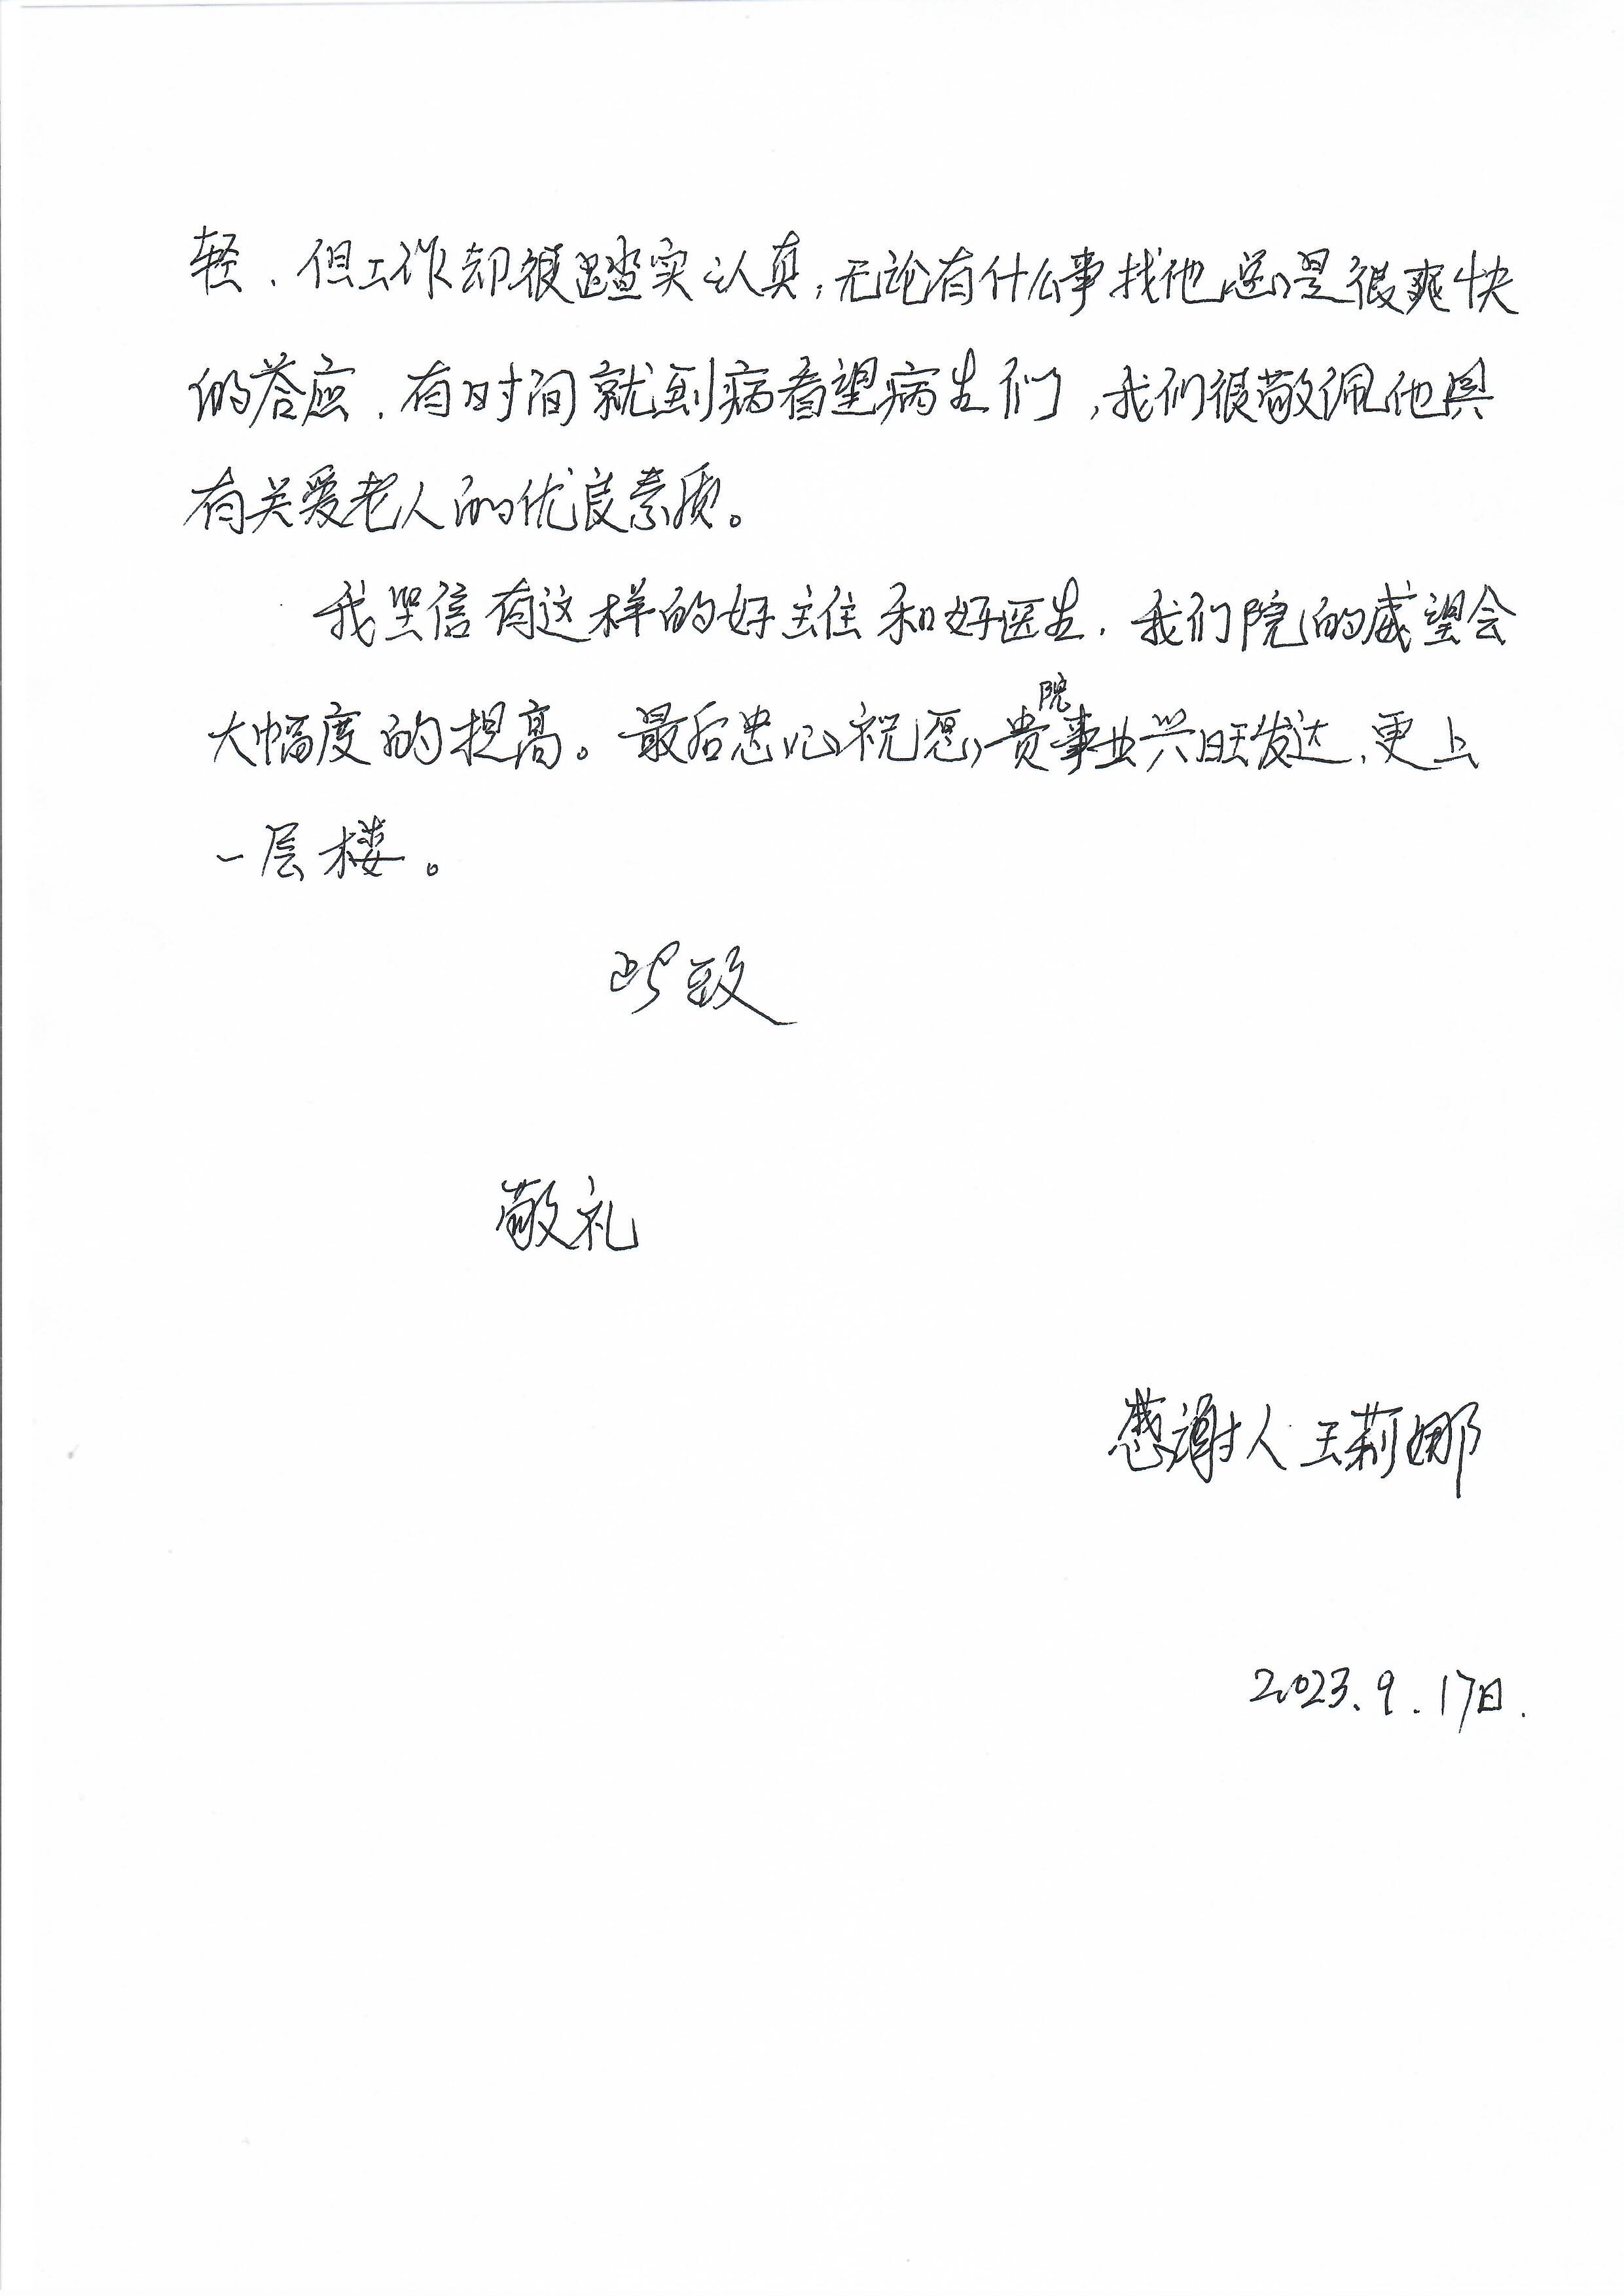 轻，但工作却很踏实认真，无论有什么事找他，总是很爽快
的答应，有时间就到病看望病生们，我们很敬佩他具
有关爱老人的优良素质。
我坚信有这样的好主任和好医生，我们院的威望会
大幅度的提高。最后忠心祝愿贵院事业兴旺发达，更上
一层楼。
此致
敬礼
感谢人 王莉娜
2023.9.17日.